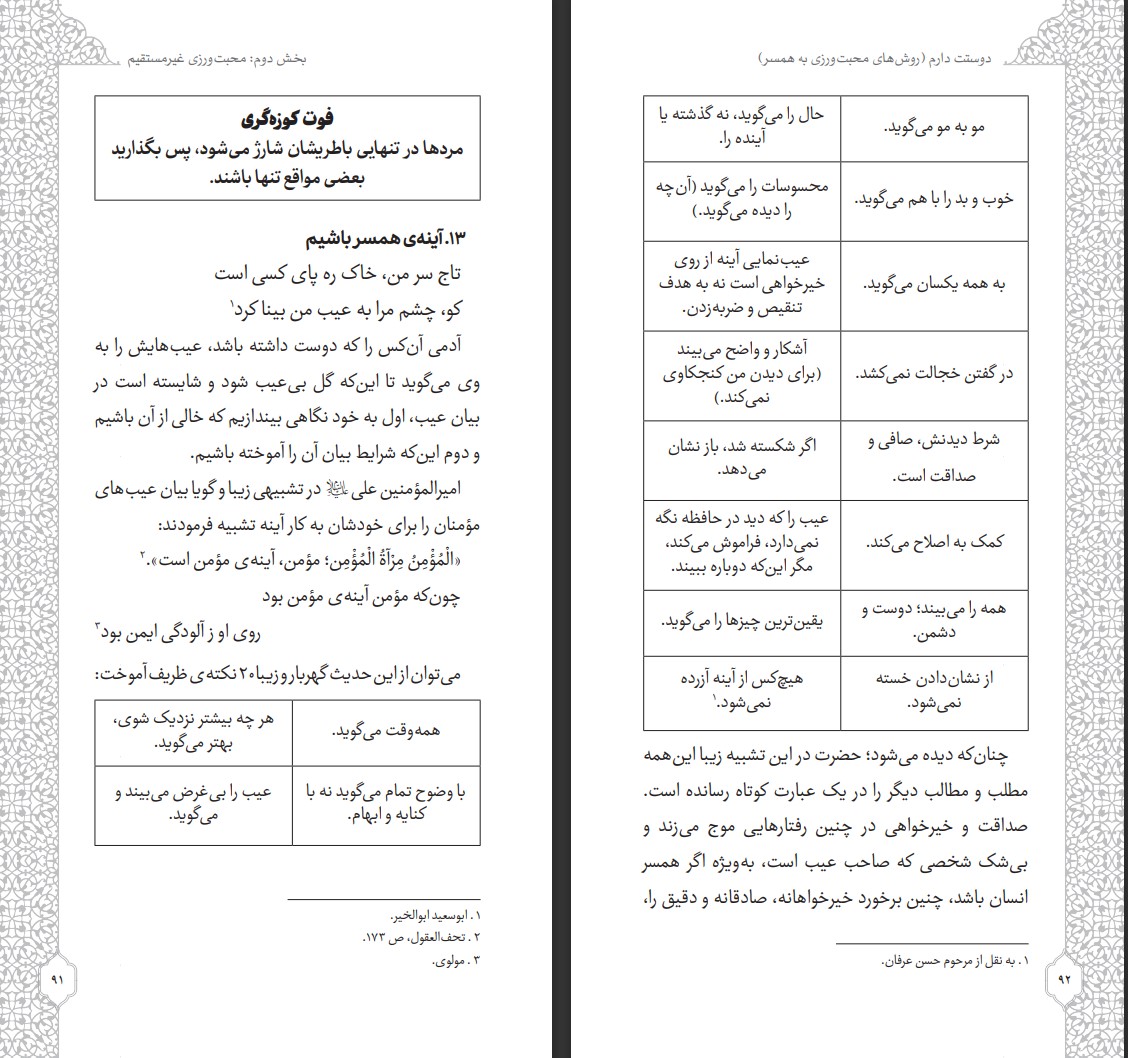 بخش دوم: محبت‌ورزی غیرمستقیم
فوت کوزه‌گری
مردها در تنهایی باطریشان شارژ می‌شود، پس بگذارید
بعضی مواقع تنها باشند.
۱۳. آینه‌ی همسر باشیم
تاج سر من، خاک ره پای کسی است
کو، چشم مرا به عیب من بینا کرد۱
آدمی آن‌کس را که دوست داشته باشد، عیب‌هایش را به
وی می‌گوید تا این‌که گل بی‌عیب شود و شایسته است در
بیان عیب، اول به خود نگاهی بیندازیم که خالی از آن باشیم
و دوم این‌که شرایط بیان آن را آموخته باشیم.
امیرالمؤمنین علی علیه‌السلام در تشبیهی زیبا و گویا بیان عیب‌های
مؤمنان را برای خودشان به کار آینه تشبیه فرمودند:
«الْمُؤْمِنُ مِرْآةُ الْمُؤْمِن؛ مؤمن، آینه‌ی مؤمن است».۲
چون‌که مؤمن آینه‌ی مؤمن بود
روی او ز آلودگی ایمن بود۳
می‌توان از این حدیث گهربار و زیبا ۲۰ نکته‌ی ظریف آموخت:
همه‌وقت می‌گوید.
هر چه بیشتر نزدیک شوی،
بهتر می‌گوید.
با وضوح تمام می‌گوید نه با
کنایه و ابهام.
عیب را بی‌غرض می‌بیند و
می‌گوید.
۱. ابوسعید ابوالخیر.
۲. تحف‌العقول، ص ۱۷۳.
۳. مولوی.
۹۱
دوستت دارم (روش‌های محبت‌ورزی به همسر)
مو به مو می‌گوید.
حال را می‌گوید، نه گذشته یا
آینده را.
خوب و بد را با هم می‌گوید.
محسوسات را می‌گوید (آن‌چه
را دیده می‌گوید.)
به همه یکسان می‌گوید.
عیب‌نمایی آینه از روی
خیرخواهی است نه به هدف
تنقیص و ضربه‌زدن.
در گفتن خجالت نمی‌کشد.
آشکار و واضح می‌بیند
(برای دیدن من کنجکاوی
نمی‌کند.)
شرط دیدنش، صافی و
صداقت است.
اگر شکسته شد، باز نشان
می‌دهد.
کمک به اصلاح می‌کند.
عیب را که دید در حافظه نگه
نمی‌دارد، فراموش می‌کند،
مگر این‌که دوباره ببیند.
همه را می‌بیند؛ دوست و
دشمن.
یقین‌ترین چیزها را می‌گوید.
از نشان‌دادن خسته
نمی‌شود.
هیچ‌کس از آینه آزرده
نمی‌شود.۱
چنان‌که دیده می‌شود؛ حضرت در این تشبیه زیبا این‌همه
مطلب و مطالب دیگر را در یک عبارت کوتاه رسانده است.
صداقت و خیرخواهی در چنین رفتارهایی موج می‌زند و
بی‌شک شخصی که صاحب عیب است، به‌ویژه اگر همسر
انسان باشد، چنین برخورد خیرخواهانه، صادقانه و دقیق را،
۱. به نقل از مرحوم حسن عرفان.
۹۲